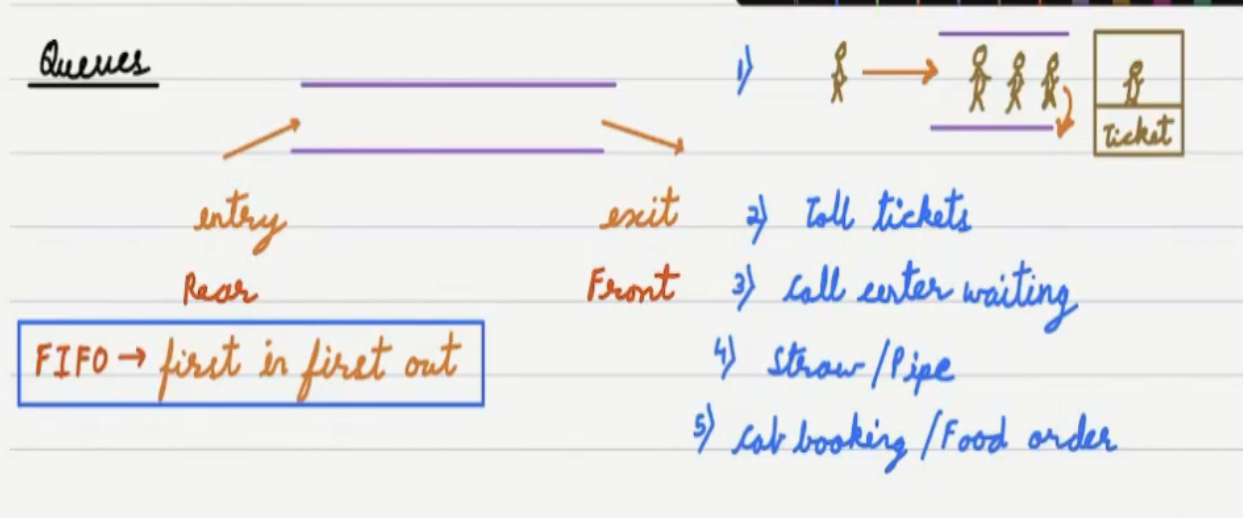 Queues
entry exit
Rear Front
FIFO → first in first out
1)
Ticket
2) Toll tickets
3) Call center waiting
4) Straw/Pipe
5) Cab booking/Food order